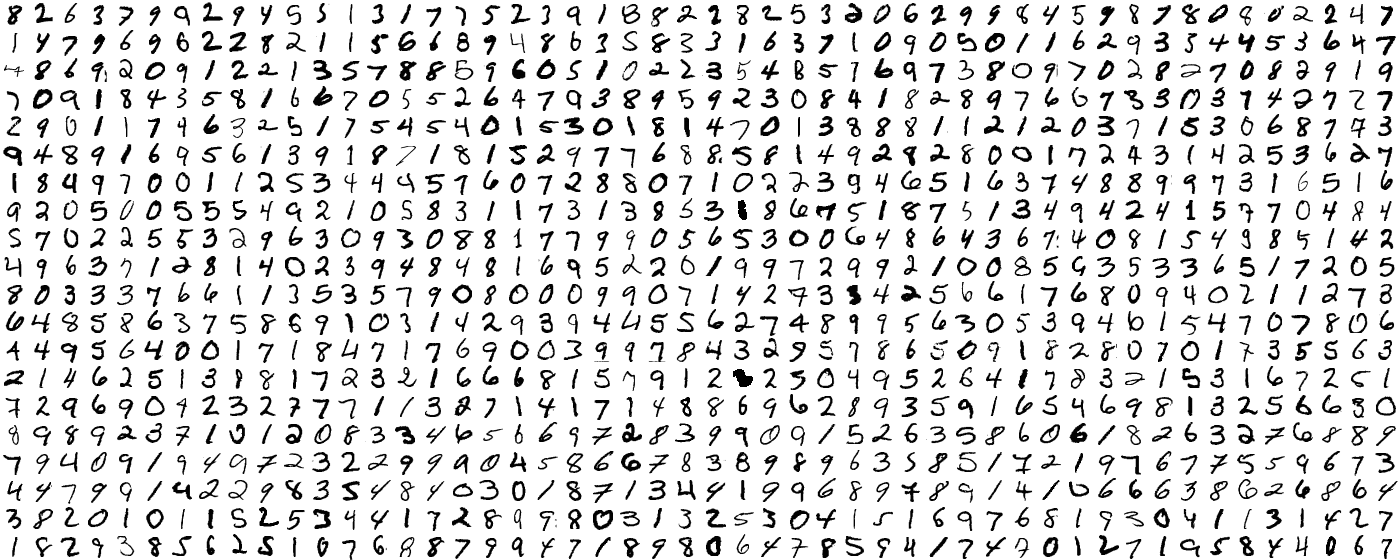 8 2 6 3 9 9 2 9 4 5 5 1 3 1 7 7 5 2 3 9 1 8 8 2 2 8 2 5 3 2 0 6 2 9 9 8 4 5 9 8 7 8 0 8 0 2 2 4 7
1 4 7 9 6 9 6 2 2 8 2 1 1 5 6 6 8 9 4 8 6 3 5 8 3 3 1 6 3 7 1 0 9 0 5 0 1 1 6 2 9 3 3 4 4 5 3 6 4 7
4 8 6 9 2 0 9 1 2 2 1 3 5 7 8 8 5 9 6 0 5 1 0 2 2 3 5 4 8 5 7 6 9 7 3 8 0 9 7 0 2 8 2 7 0 8 2 9 1 9
7 0 9 1 8 4 3 5 8 1 6 6 7 0 5 5 2 6 4 7 9 3 8 9 5 9 2 3 0 8 4 1 8 2 8 9 7 6 6 7 3 3 0 3 7 4 2 7 7 7
2 9 0 1 1 7 4 6 3 2 5 1 7 5 4 5 4 0 1 5 3 0 1 8 1 4 7 0 1 3 8 8 8 1 1 2 1 2 0 3 7 1 5 3 0 6 8 7 7 3
9 4 8 9 1 6 9 5 6 1 3 9 1 8 7 1 8 1 5 2 9 7 7 6 8 8 5 8 1 4 9 2 8 2 8 0 0 1 7 2 4 3 1 4 2 5 3 6 2 7
1 8 4 9 7 0 0 1 1 2 5 3 4 4 4 5 7 6 0 7 2 8 8 0 7 1 0 2 2 3 9 4 6 5 1 6 3 7 4 8 8 9 9 7 3 1 6 5 1 6
9 2 0 5 0 0 5 5 5 4 9 2 1 0 5 8 3 1 1 7 3 1 3 8 5 3 1 8 6 7 5 1 8 7 5 1 3 4 9 4 2 4 1 5 7 7 0 4 8 4
5 7 0 2 2 5 5 3 2 9 6 3 0 9 3 0 8 8 1 7 7 9 9 0 5 6 5 3 0 0 6 4 8 6 4 3 6 7 4 0 8 1 5 4 9 8 5 1 4 2
4 9 6 3 7 1 2 8 1 4 0 2 3 9 4 8 4 8 1 6 9 5 2 2 0 1 9 9 7 2 9 9 2 1 0 0 8 5 9 3 5 3 3 6 5 1 7 2 0 5
8 0 3 3 3 7 6 6 1 1 3 5 3 5 7 9 0 8 0 0 0 9 9 0 7 1 4 2 7 3 3 4 2 5 6 6 1 7 6 8 0 9 4 0 2 1 1 2 7 8
6 4 8 5 8 6 3 7 5 8 6 9 1 0 3 1 4 2 9 3 9 4 4 5 5 6 2 7 4 8 9 9 5 6 3 0 5 3 9 4 6 1 5 4 7 0 7 8 0 6
4 4 9 5 6 4 0 0 1 7 1 8 4 7 1 7 6 9 0 0 3 9 9 7 8 4 3 2 9 5 7 8 6 5 0 9 1 8 2 8 0 7 0 1 7 3 5 5 6 3
2 1 4 6 2 5 1 3 8 1 7 2 3 2 1 6 6 6 8 1 5 7 9 1 2 2 5 0 4 9 5 2 6 4 1 7 8 3 2 1 5 3 1 6 7 2 5 1
7 2 9 6 9 0 4 2 3 2 7 7 7 1 1 3 2 7 1 4 1 7 1 4 8 8 6 9 6 2 8 9 3 5 9 1 6 5 4 6 9 8 1 3 2 5 6 6 3 0
8 9 8 9 2 3 7 1 0 1 2 0 8 3 3 4 6 5 6 6 9 7 2 8 3 9 9 0 9 1 5 2 6 3 5 8 6 0 6 1 8 2 6 3 2 7 6 8 8 9
7 9 4 0 9 1 9 4 9 7 2 3 2 2 9 9 9 0 4 5 8 6 6 7 8 3 8 9 8 9 6 3 5 8 5 1 7 2 1 9 7 6 7 7 5 5 9 6 7 3
4 4 7 9 9 1 4 2 2 9 8 3 5 4 8 4 0 3 0 1 8 7 1 3 4 4 1 9 9 6 8 9 7 8 9 1 4 1 0 6 6 6 3 8 6 2 6 8 6 4
3 8 2 0 1 0 1 1 5 2 5 3 4 4 1 7 2 8 9 9 8 0 3 1 3 2 5 3 0 4 1 5 1 6 9 7 6 8 1 9 3 0 4 1 1 3 1 4 2 7
1 8 2 9 3 8 5 6 2 5 1 0 7 6 8 8 7 9 9 4 7 1 8 9 8 0 6 4 7 8 5 9 4 1 7 4 7 0 1 2 7 1 9 5 8 4 4 0 6 7